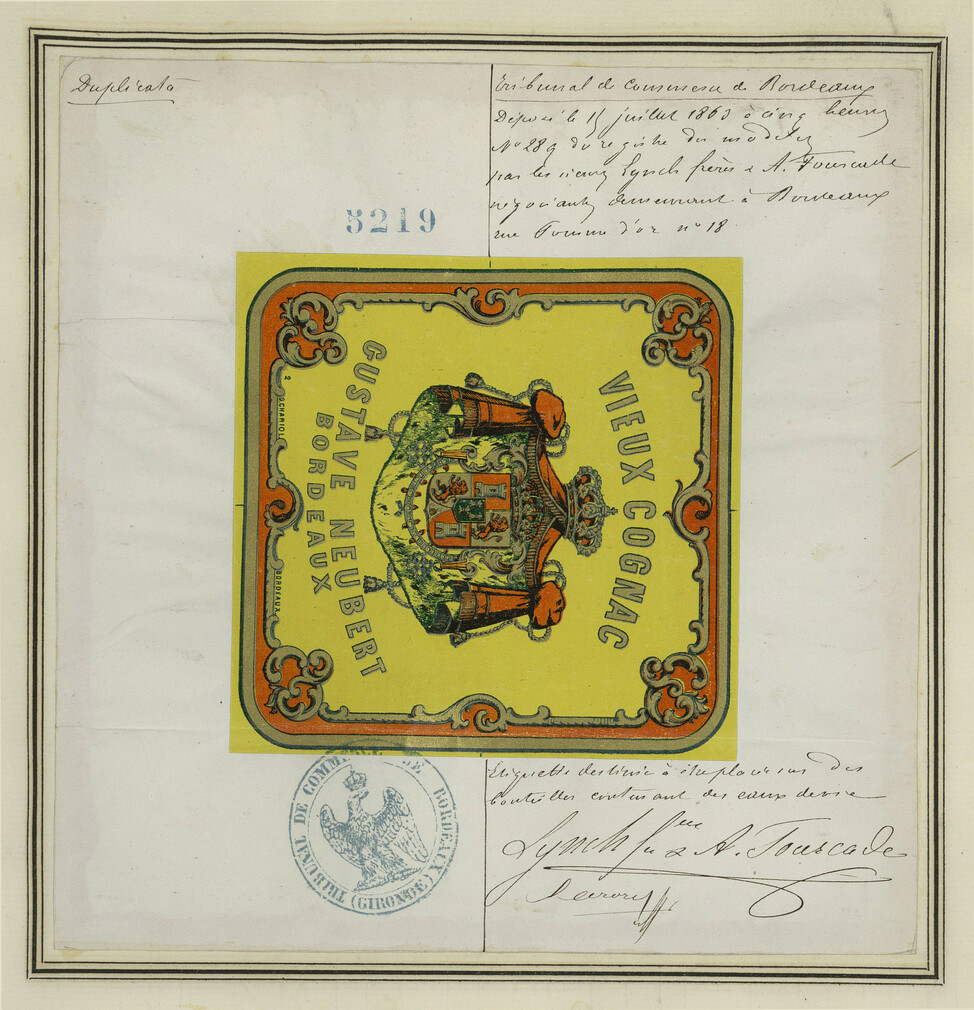 Duplicata
Tribunal de commerce de Bordeaux
Déposé le 15 juillet 1863 à cinq heures
No 289 du registre des modèles
par les sieurs Lynch frères & A. Fourcade
négociants demeurant à Bordeaux
rue Pomme d'or no 18
5219
VIEUX COGNAC
GUSTAVE NEUBERT
BORDEAUX
BORDEAUX
TRIBUNAL DE COMMERCE DE BORDEAUX (GIRONDE)
Etiquette destinée à être placée sur des
bouteilles contenant des eaux de vie
Lynch & A. Fourcade